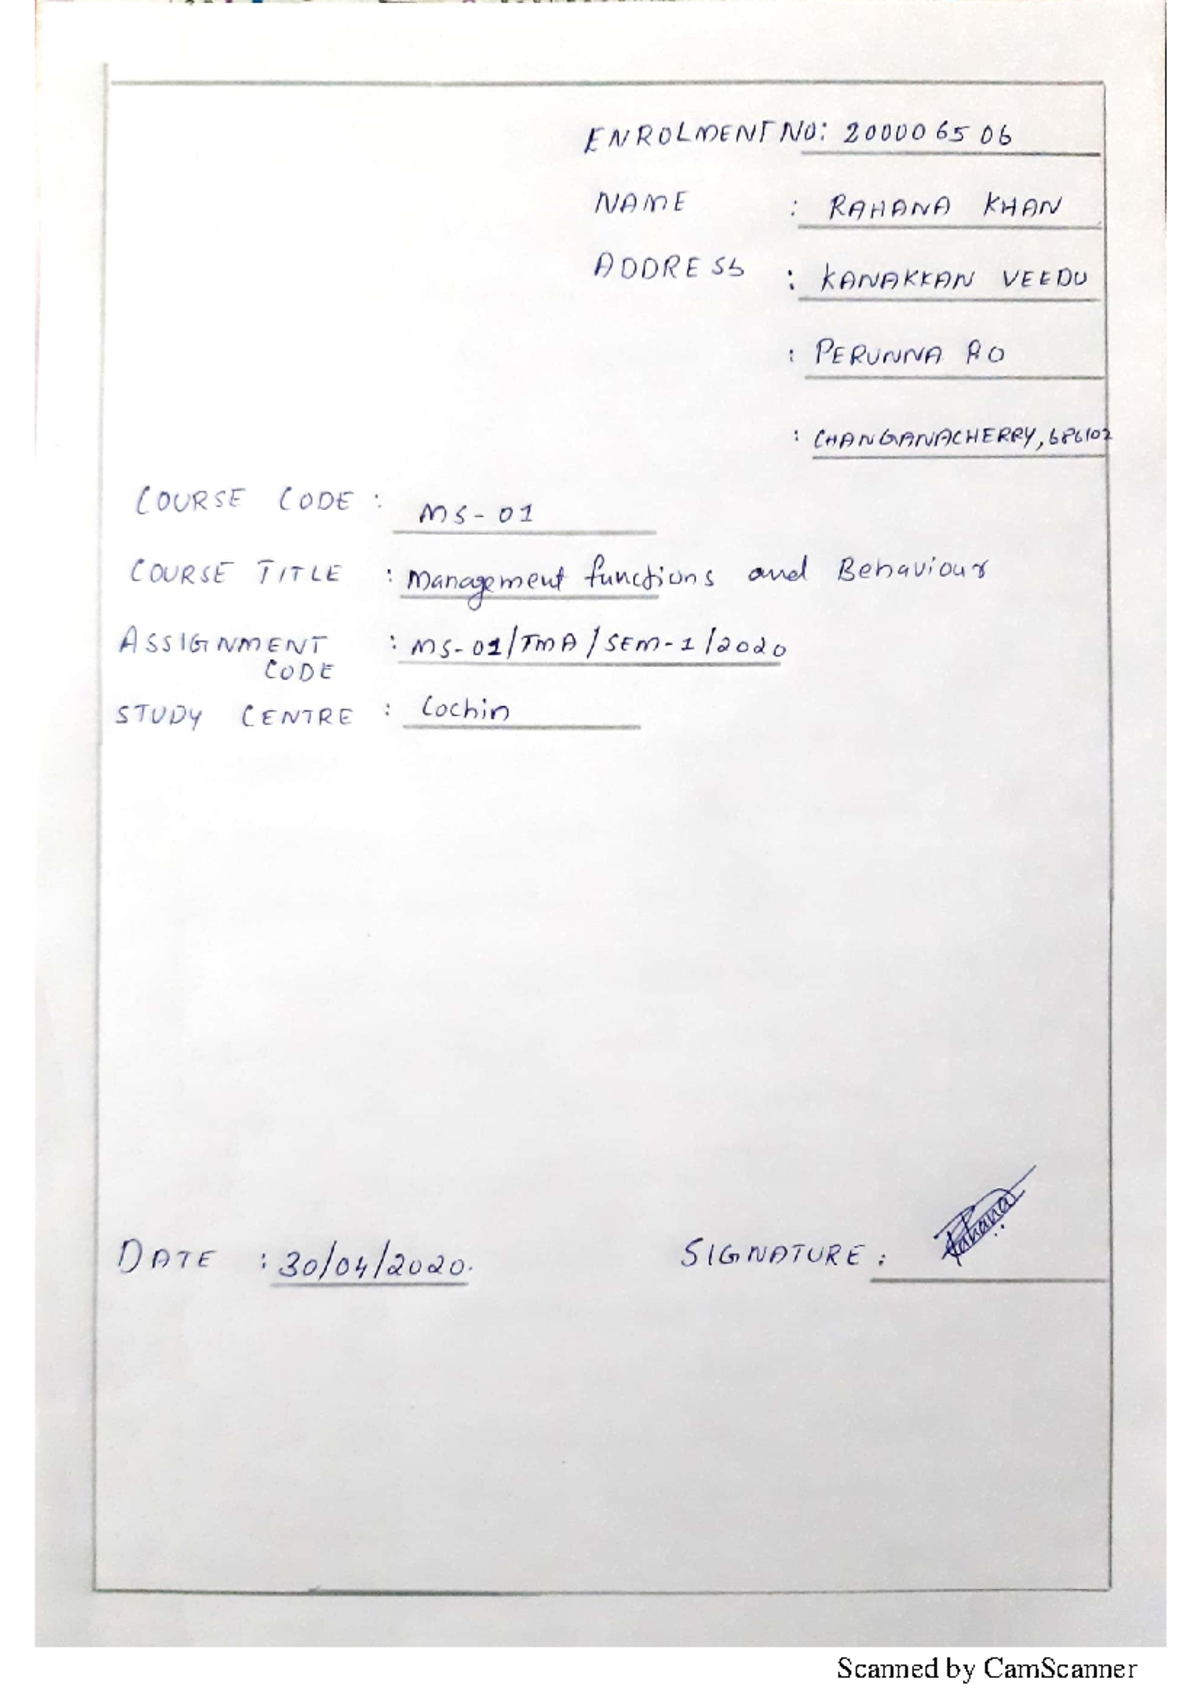 ENROLMENT NO: 200006506
NAME : RAHANA KHAN
ADDRESS : KANAKKAN VEEDU
: PERUNNA P.O
: CHANGANACHERRY, 686102
COURSE CODE : MS-01
COURSE TITLE : Management functions and Behaviour
ASSIGNMENT CODE : MS-01/TMA/SEM-1/2020
STUDY CENTRE : Cochin
DATE : 30/04/2020.
SIGNATURE : Rahana
Scanned by CamScanner